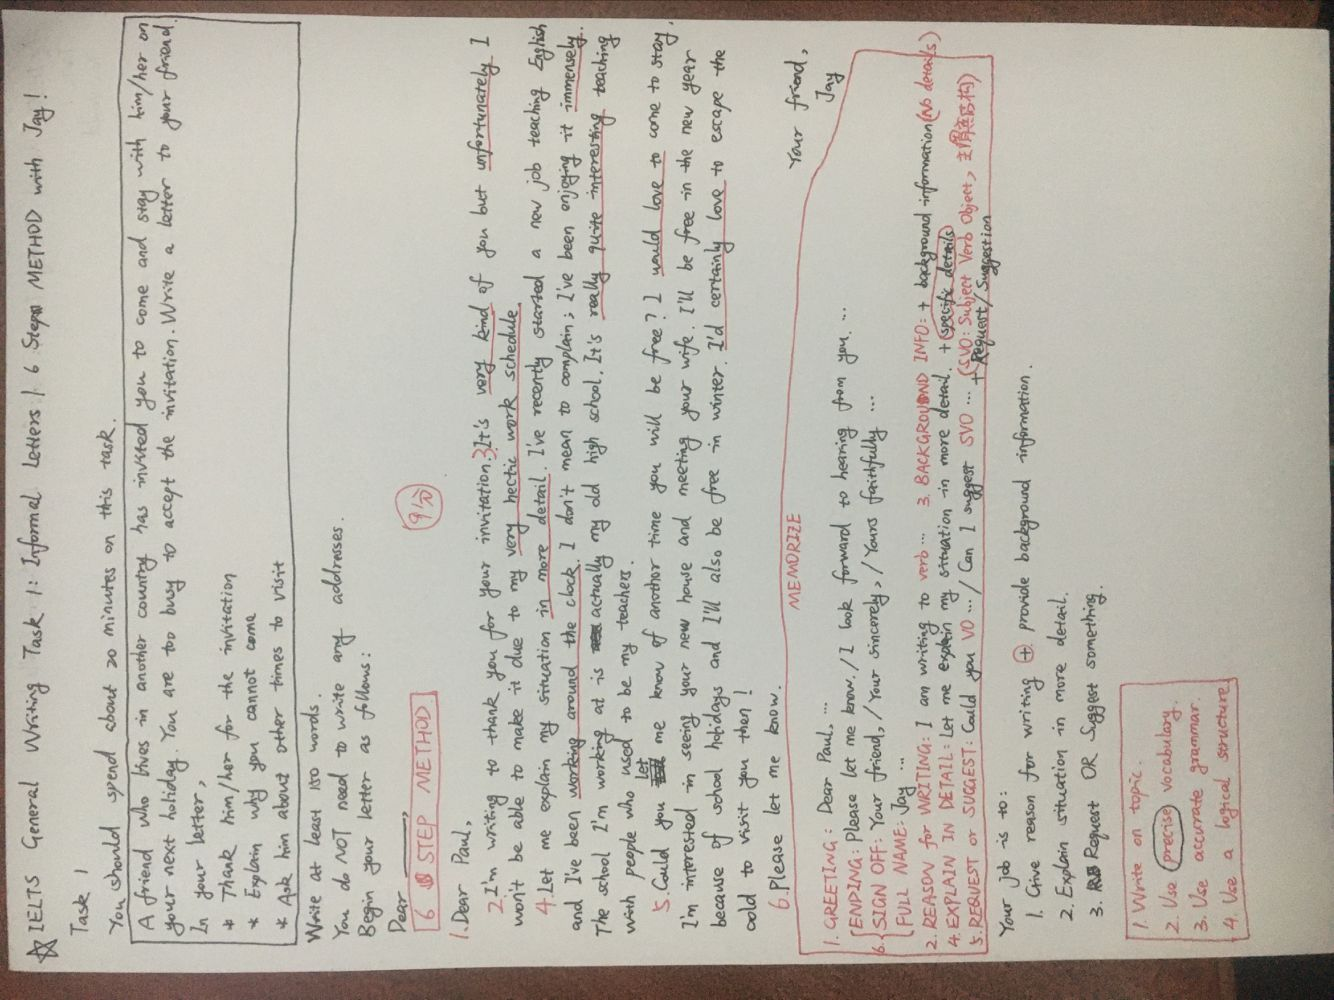 ☆ IELTS General Writing Task 1: Informal Letters | 6 Step METHOD with Jay!
Task 1
You should spend about 20 minutes on this task.
A friend who lives in another country has invited you to come and stay with him/her on
your next holiday. You are too busy to accept the invitation. Write a letter to your friend.
In your letter,
* Thank him/her for the invitation
* Explain why you cannot come
* Ask him about other times to visit
Write at least 150 words.
You do NOT need to write any addresses.
Begin your letter as follows:
Dear ______,
6 STEP METHOD
9分
1. Dear Paul,
2. I'm writing to thank you for your invitation. 3) It's very kind of you but unfortunately I
won't be able to make it due to my very hectic work schedule.
4. Let me explain my situation in more detail. I've recently started a new job teaching English
and I've been working around the clock. I don't mean to complain; I've been enjoying it immensely.
The school I'm working at is actually my old high school. It's really quite interesting teaching
with people who used to be my teachers.
5. Could you let me know of another time you will be free? I would love to come to stay.
I'm interested in seeing your new house and meeting your wife. I'll be free in the new year
because of school holidays and I'll also be free in winter. I'd certainly love to escape the
cold to visit you then!
6. Please let me know.
Your friend,
Jay
MEMORIZE
1. GREETING: Dear Paul, ...
6. ENDING: Please let me know. / I look forward to hearing from you. ...
SIGN OFF: Your friend, / Your sincerely, / Yours faithfully ...
FULL NAME: Jay ...
2. REASON for WRITING: I am writing to verb ... 3. BACKGROUND INFO: + background information (No details)
4. EXPLAIN IN DETAIL: Let me explain my situation in more detail. + (specific details)
5. REQUEST or SUGGEST: Could you VO ... / Can I suggest SVO ... (SVO: Subject Verb Object, 主谓宾结构)
+ Request / Suggestion
Your job is to:
1. Give reason for writing + provide background information.
2. Explain situation in more detail.
3. Request OR Suggest something.
1. Write on topic.
2. Use precise vocabulary.
3. Use accurate grammar.
4. Use a logical structure